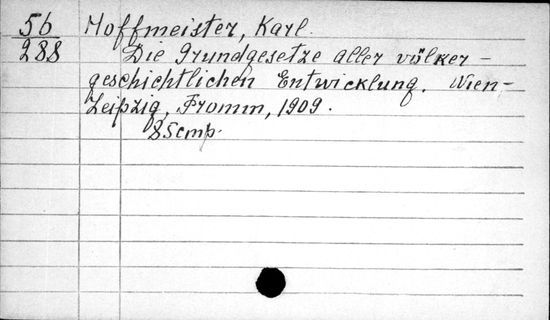 56 Hoffmeister, Karl.
288 Die Grundgesetze aller völker-
geschichtlichen Entwicklung. Wien-
Leipzig, Fromm, 1909.
85 стр.